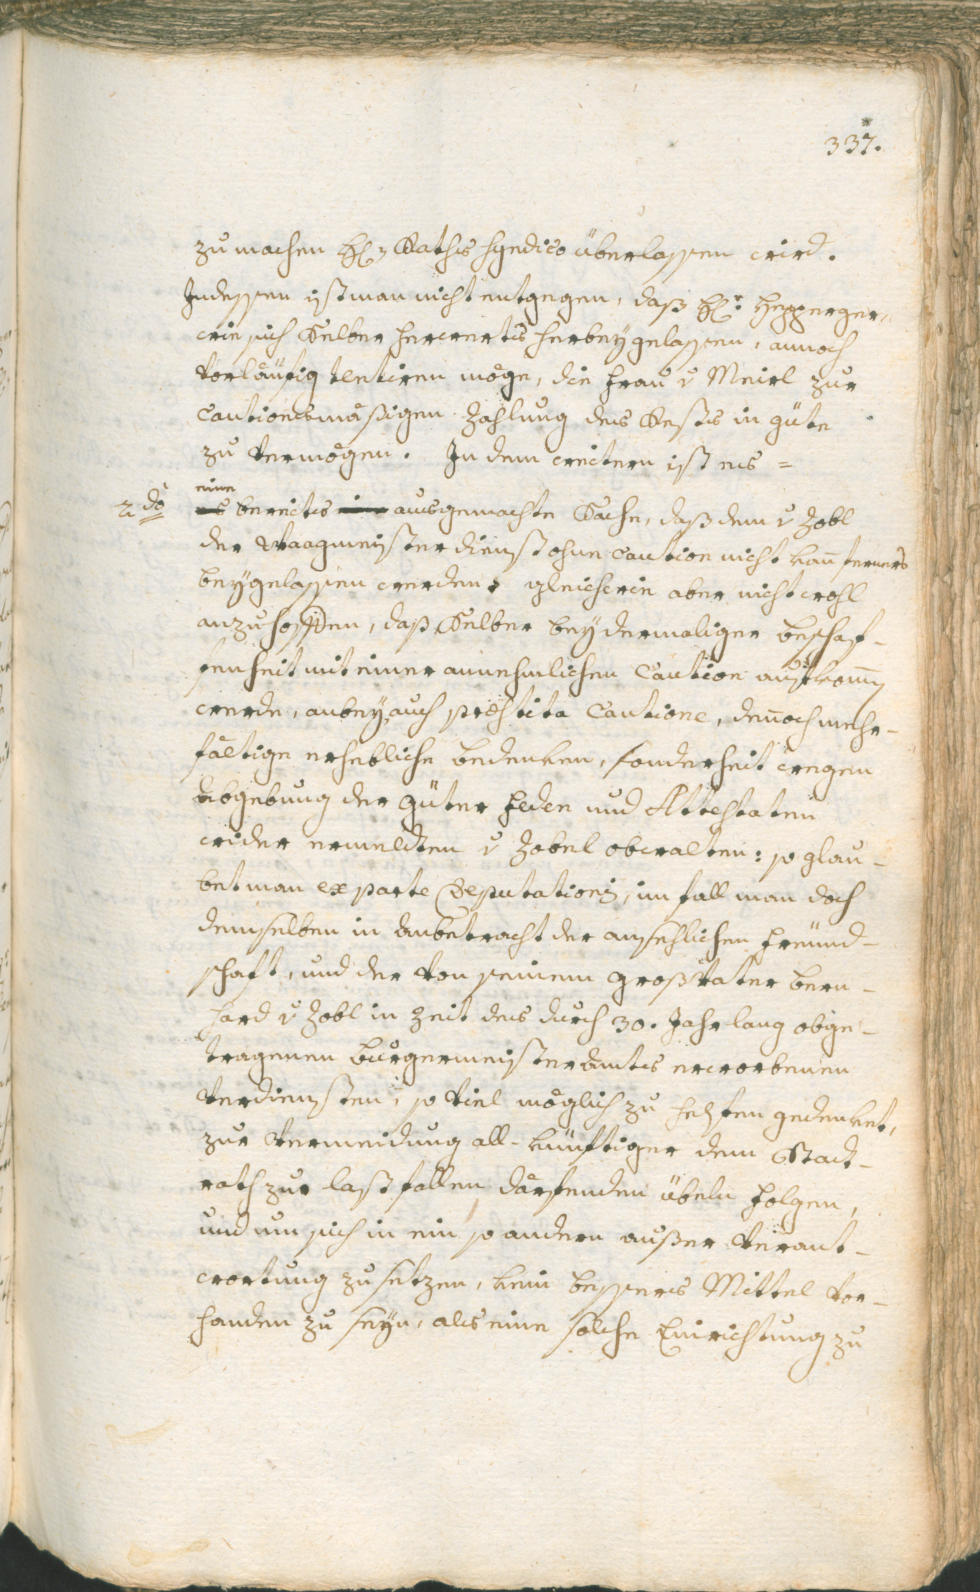 337.
zu machen H: Raths Syndico überlassen wird.
Indessen ist man nicht entgegen, daß H: Hepperger,
wie sich Selber hierwerts herbeygelassen, annoch
vorläufig tentiren möge, die Frau v Meirl zur
Cautionsmäßigen Zahlung des Rests in güte
zu vermögen. In dem weitern ist es =
2do
eine
bereits ausgemachte Sache, daß dem v Zobl
der Waagmeister dienst ohne Caution nicht kan ferners
beygelassen werden, gleichwie aber nicht wohl
anzuhoffen, daß Selber bey dermaliger beschaf-
fenheit mit einer annehmlichen Caution aufkom̄en
werde, anbey auch præstita Cautione, den̄och mehr-
fältige erhebliche bedenken, sonderheit wegen
Abgebung der Güter Feden und Attestaten
wider ermeldten v Zobel obwalten: so glau-
bet man ex parte Deputationis, im fall man doch
demselben in anbetracht der ansehlichen Freünd-
schaft, und der von seinem Großvater bern-
hard v Zobl in Zeit des durch 30. Jahr lang obge-
tragenen burgermeister Amtes erworbenen
verdiensten, so viel möglich zu helfen gedenket,
zur vermeidung all-künftiger dem Stadt-
rath zur last fallen därfenden übeln folgen,
und um sich in ein so andern außer verant-
wortung zu setzen, kein bessers Mittel vor-
handen zu seyn, als eine solche Einrichtung zu